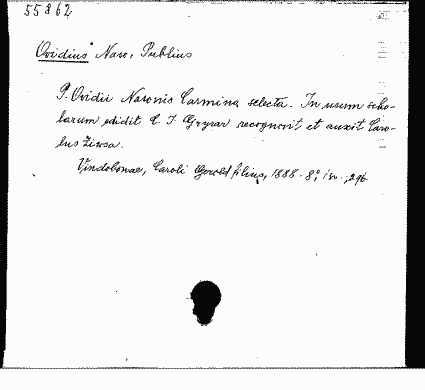 55862
Ovidius Naso, Publius
P. Ovidii Nasonis Carmina selecta. In usum scho-
larum edidit C. J. Grysar recognovit et auxit Caro-
lus Ziwsa.
Vindobonae, Caroli Gerold filius, 1888. 8°, 296